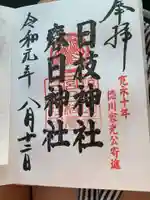 奉拝
寛永十年
徳川家光公寄進
日枝神社
春日神社
令和元年 八月十二日